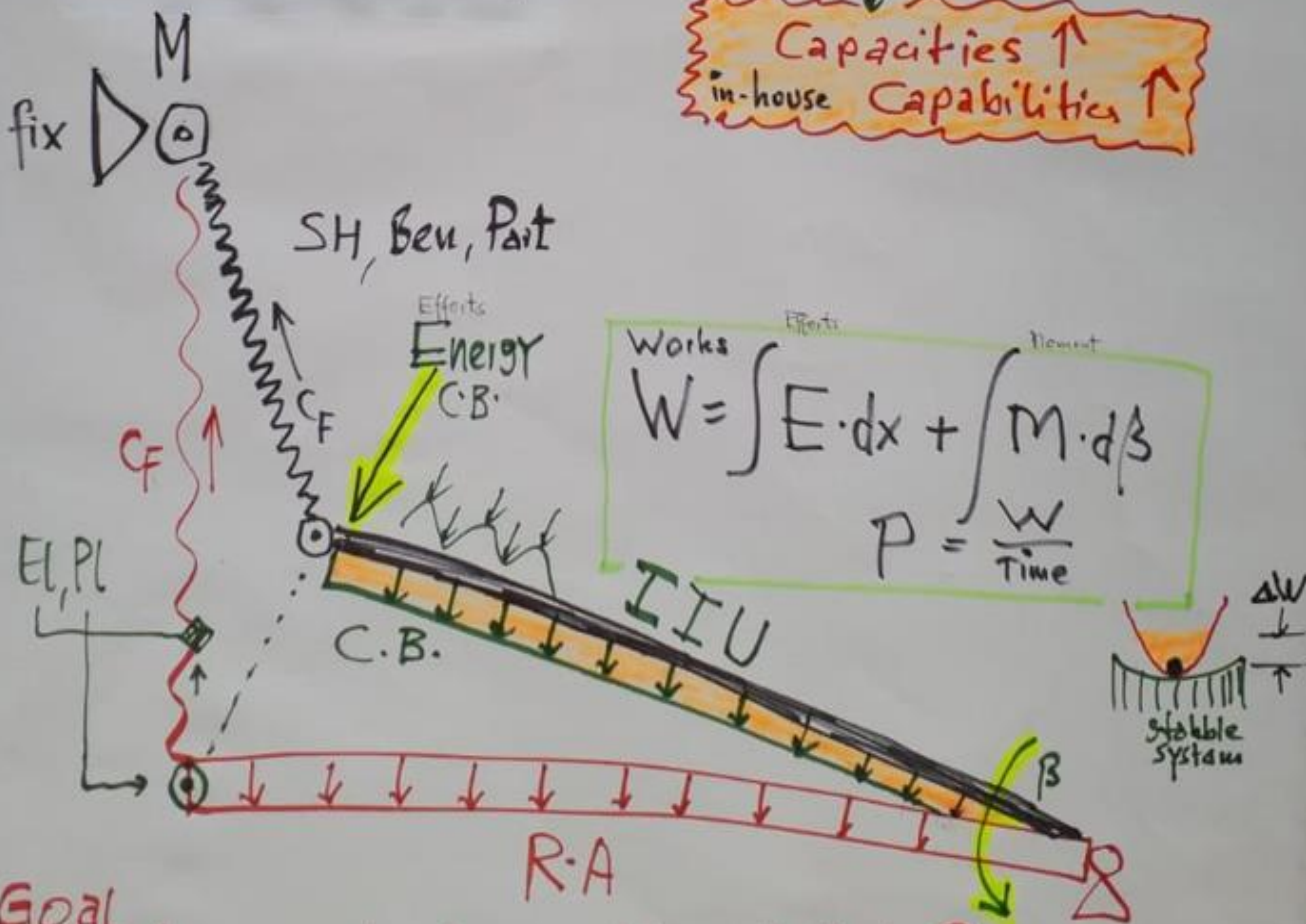 M
fix
Capacities ↑
in-house Capabilities ↑
SH, Ben, Part
Efforts
Energy
C.B.
CF
CF
Works
Efforts
Moment
W = ∫E·dx + ∫M·dβ
P = W
Time
El, Pl
C.B.
IIU
ΔW
stabble
system
β
R·A
Goal